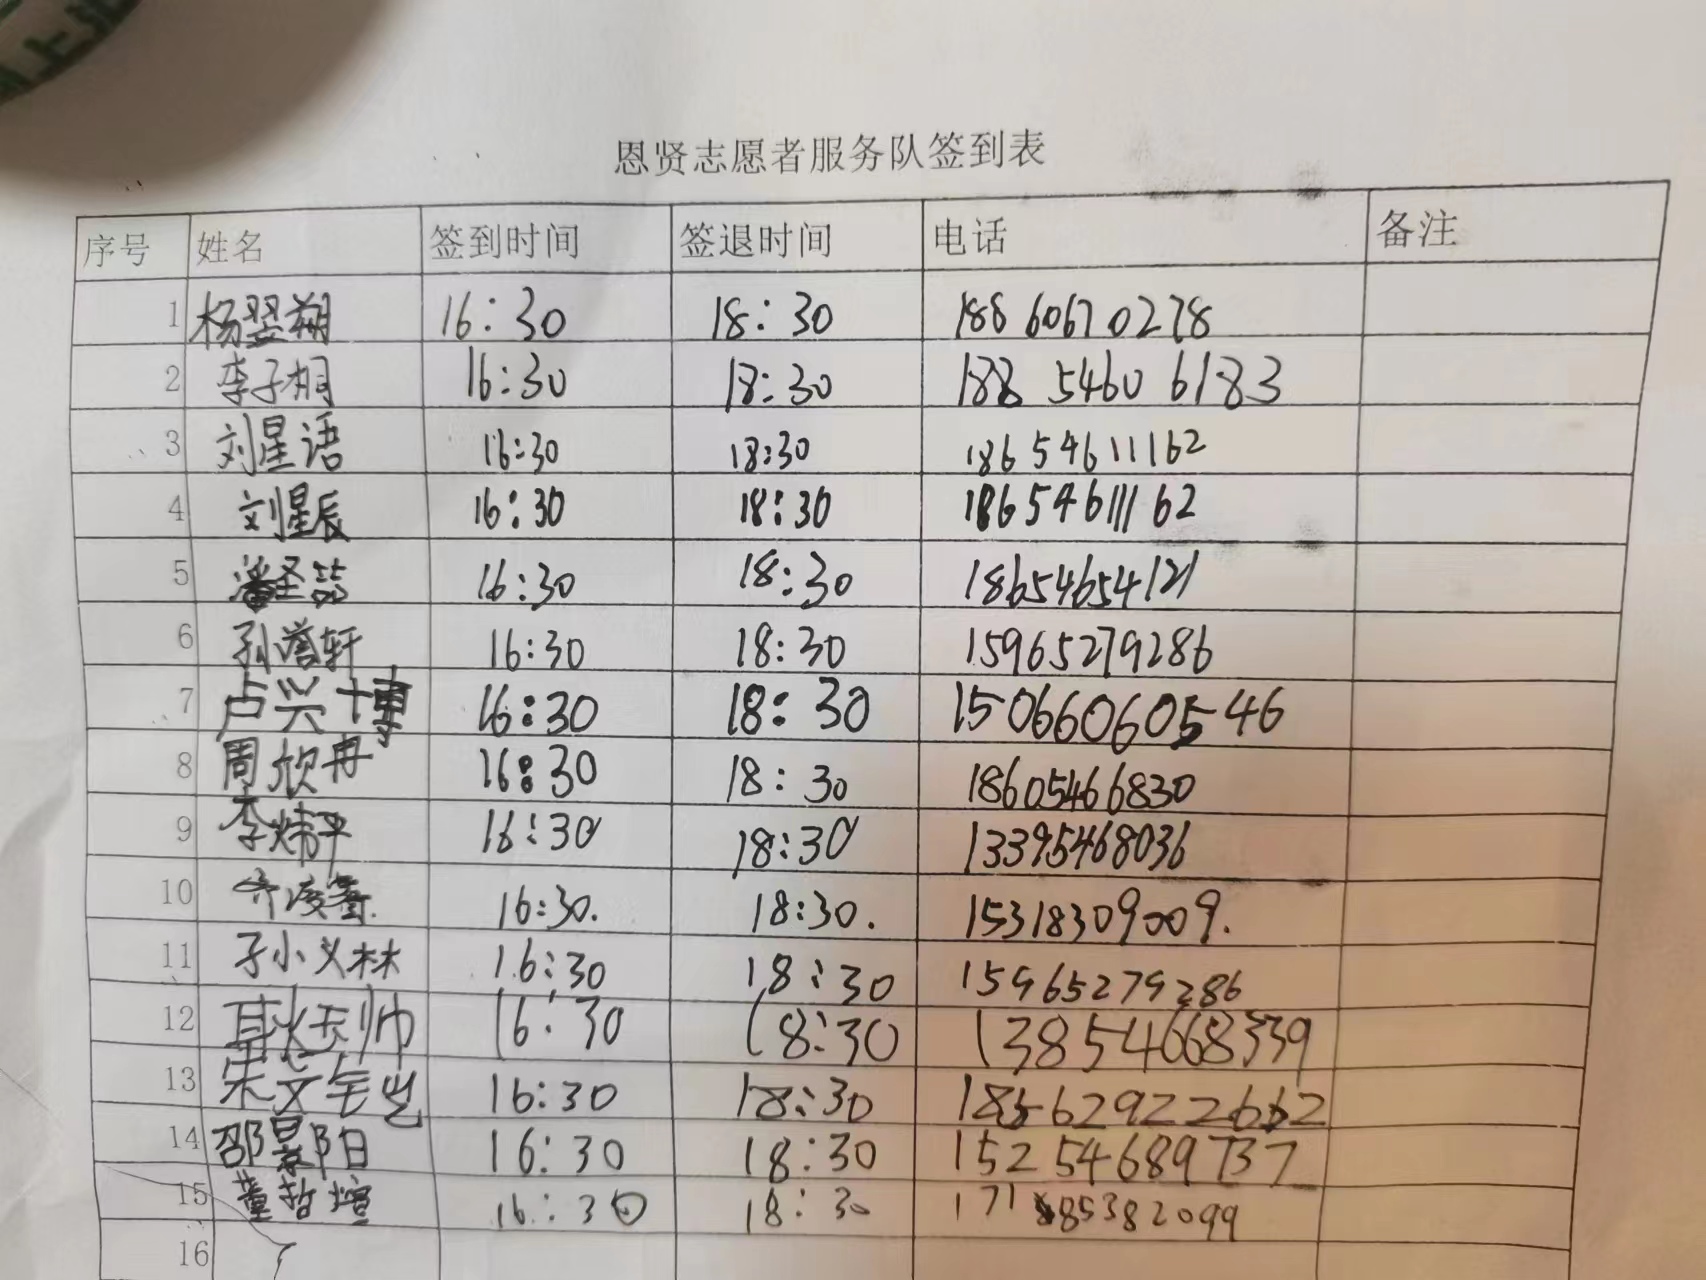 上
恩贤志愿者服务队签到表
序号 姓名 签到时间 签退时间 电话 备注
1 杨翌朔 16:30 18:30 18860670278
2 李子桐 16:30 18:30 188 5460 6183
3 刘星语 16:30 18:30 18654611162
4 刘星辰 16:30 18:30 18654611162
5 潘圣喆 16:30 18:30 18654654121
6 孙誉轩 16:30 18:30 15965279286
7 卢兴博 16:30 18:30 15066060546
8 周欣冉 16:30 18:30 18605466830
9 李炜平 16:30 18:30 13395468036
10 齐凌 16:30. 18:30. 15318309009.
11 孙林 16:30 18:30 15965279286
12 帅 16:30 18:30 13854668339
13 宋文 16:30 18:30
14 邵景阳 16:30 18:30 15254689737
15 董哲煊 16:30 18:30
16